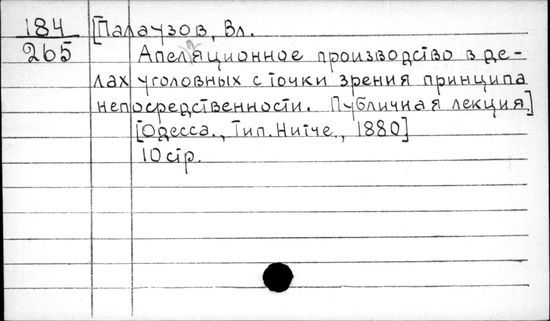 184
265
[Палаузов, Вл.
Апеляционное производство в де-
лах уголовных с точки зрения принципа
непосредственности. Публичная лекция]
[Одесса., Тип. Нитче., 1880]
10 стр.